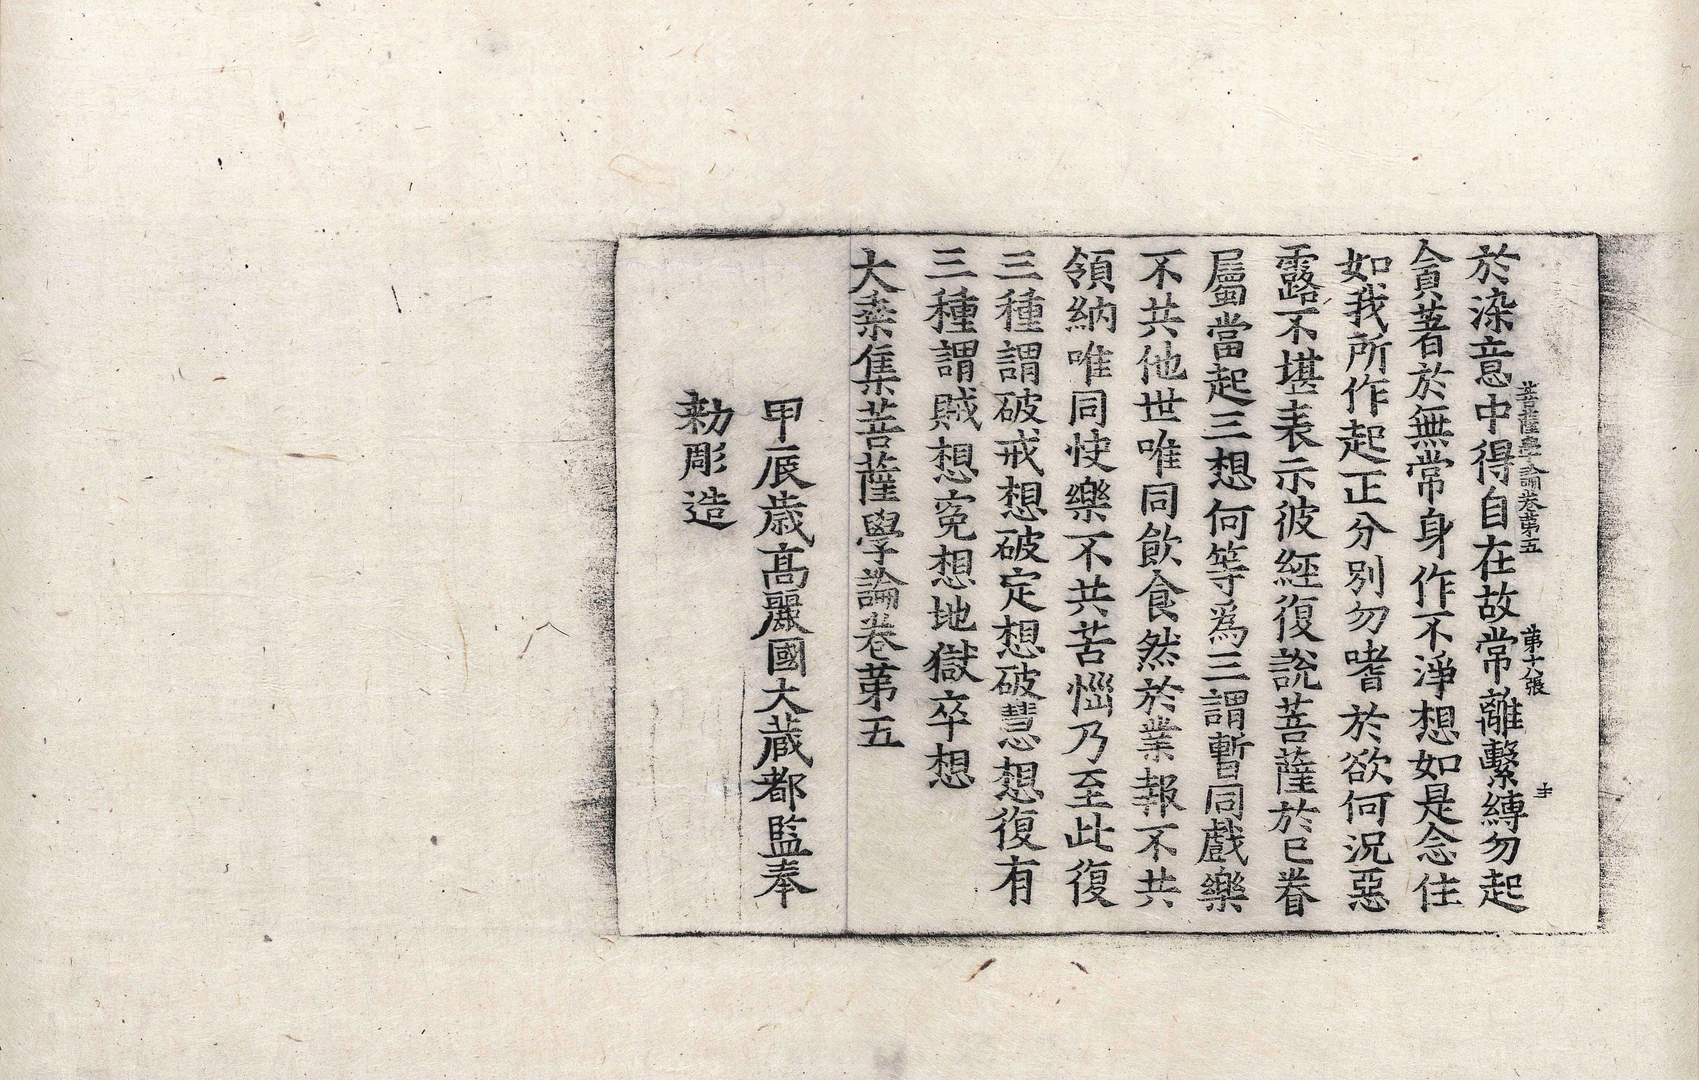 菩薩學論卷第五 第十八張
於染意中得自在故常離繫縛勿起
貪著於無常身作不淨想如是念住
如我所作起正分別勿嗜於欲何況惡
露不堪表示彼經復說菩薩於己眷
屬當起三想何等爲三謂暫同戲樂
不共他世唯同飮食然於業報不共
領納唯同快樂不共苦惱乃至此復
三種謂破戒想破定想破慧想復有
三種謂賊想寃想地獄卒想
大乗集菩薩學論卷第五
甲辰歳高麗國大蔵都監奉
勑彫造